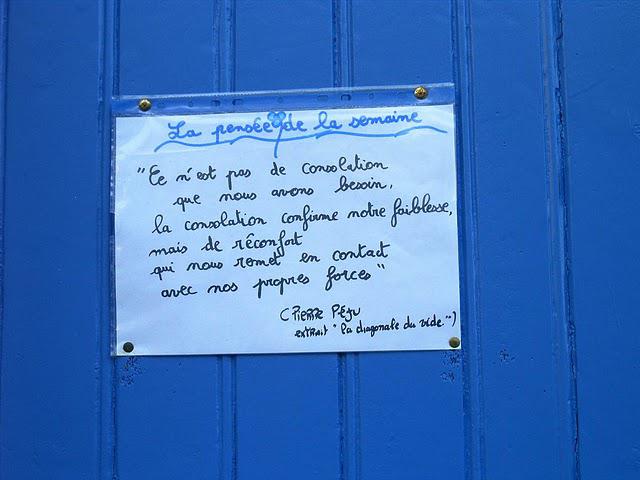 La pensée de la semaine
"Ce n'est pas de consolation
que nous avons besoin,
la consolation confirme notre faiblesse,
mais de réconfort
qui nous remet en contact
avec nos propres forces"
(PIERRE PÉJU
extrait "la diagonale du vide")